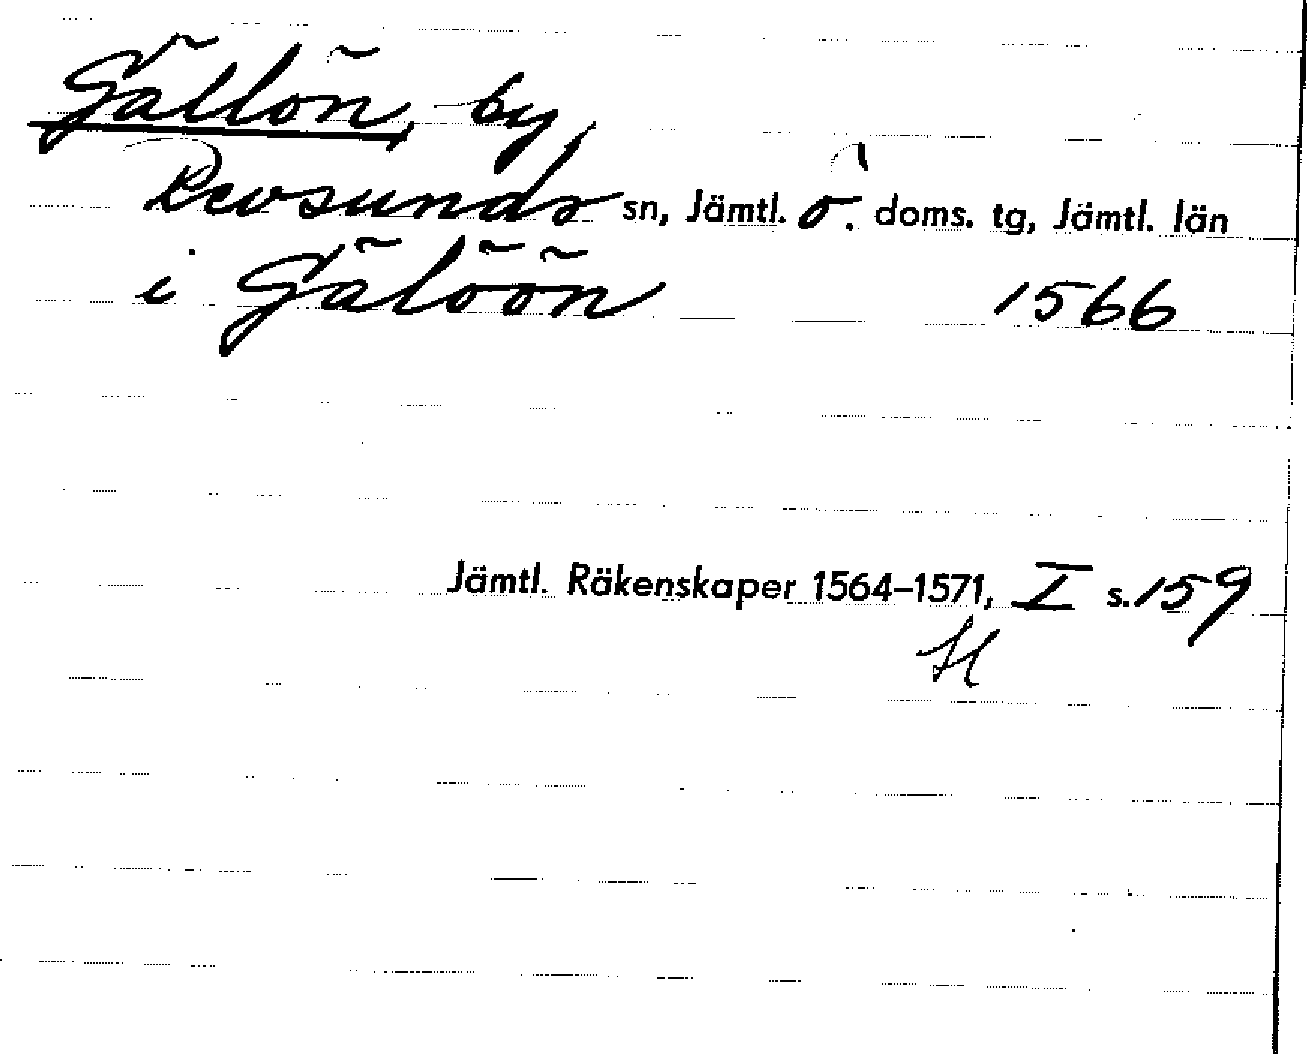 Gällön, by,
Revsunds sn, Jämtl. ö. doms. tg, Jämtl. län
i Gälöön 1566
Jämtl. Räkenskaper 1564–1571, I s. 159